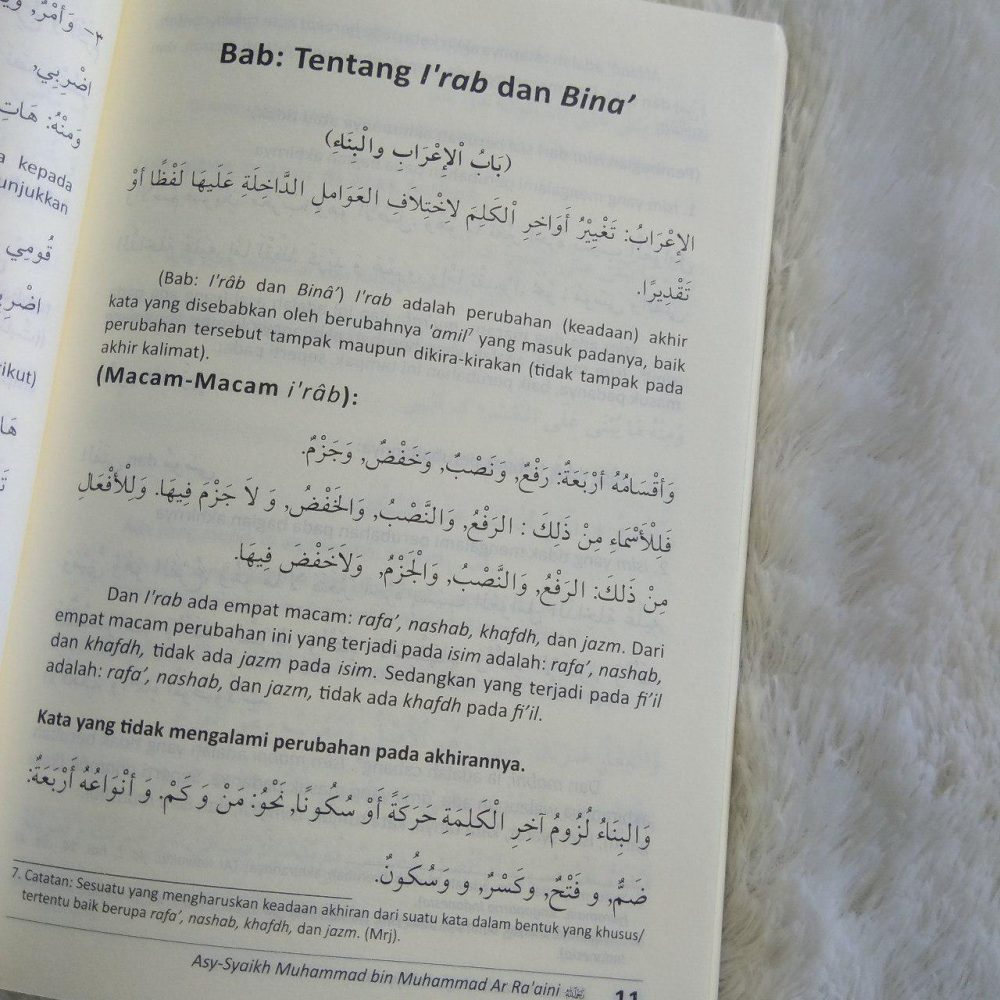 ٣- وَأَمْرٌ،
اضْرِبِي،
وَمِنْهُ: هَاتِ
kepada
unjukkan
قُومِي
اضْرِبِ
rikut)
Bab: Tentang I'rab dan Bina’
(بَابُ اْلإِعْرَابِ والْبِنَاءِ)
الإِعْرَابُ: تَغْيِيْرُ أَوَاخِرِ اْلكَلِمَ لاِخْتِلاَفِ العَوَاملِ الدَّاخِلَةِ عَلَيهَا لَفْظًا أوْ
تَقْدِيرًا.
(Bab: I'râb dan Binâ’) I'rab adalah perubahan (keadaan) akhir
kata yang disebabkan oleh berubahnya 'amil⁷ yang masuk padanya, baik
perubahan tersebut tampak maupun dikira-kirakan (tidak tampak pada
akhir kalimat).
(Macam-Macam i'râb):
وَأقْسَامُهُ أرْبَعَةٌ: رَفْعٌ, وَنَصْبٌ, وَخَفْضٌ, وَجَزْمٌ.
فَلِلْأَسْمَاءِ مِنْ ذَلكَ : الرَفْعُ, وَالنَّصْبُ, وَالخَفْضُ, وَ لاَ جَزْمَ فِيهَا. وَلِلْأَفْعَالِ
مِنْ ذَلكَ: الرَفْعُ, وَالنَّصْبُ, وَالْجَزْمُ, وَلاَخَفْضَ فِيهَا.
Dan I'rab ada empat macam: rafa’, nashab, khafdh, dan jazm. Dari
empat macam perubahan ini yang terjadi pada isim adalah: rafa’, nashab,
dan khafdh, tidak ada jazm pada isim. Sedangkan yang terjadi pada fi’il
adalah: rafa’, nashab, dan jazm, tidak ada khafdh pada fi’il.
Kata yang tidak mengalami perubahan pada akhirannya.
وَالبِنَاءُ لُزُومُ آخِرِ الْكَلِمَةِ حَرَكَةً أَوْ سُكُونًا, نَحْوُ: مَنْ وَ كَمْ. وَ أنْوَاعُهُ أَرْبَعَةٌ:
ضَمٌّ, و فَتْحٌ, وكَسْرٌ, و وَسُكُونٌ.
7. Catatan: Sesuatu yang mengharuskan keadaan akhiran dari suatu kata dalam bentuk yang khusus/
tertentu baik berupa rafa’, nashab, khafdh, dan jazm. (Mrj).
Asy-Syaikh Muhammad bin Muhammad Ar Ra'aini 11